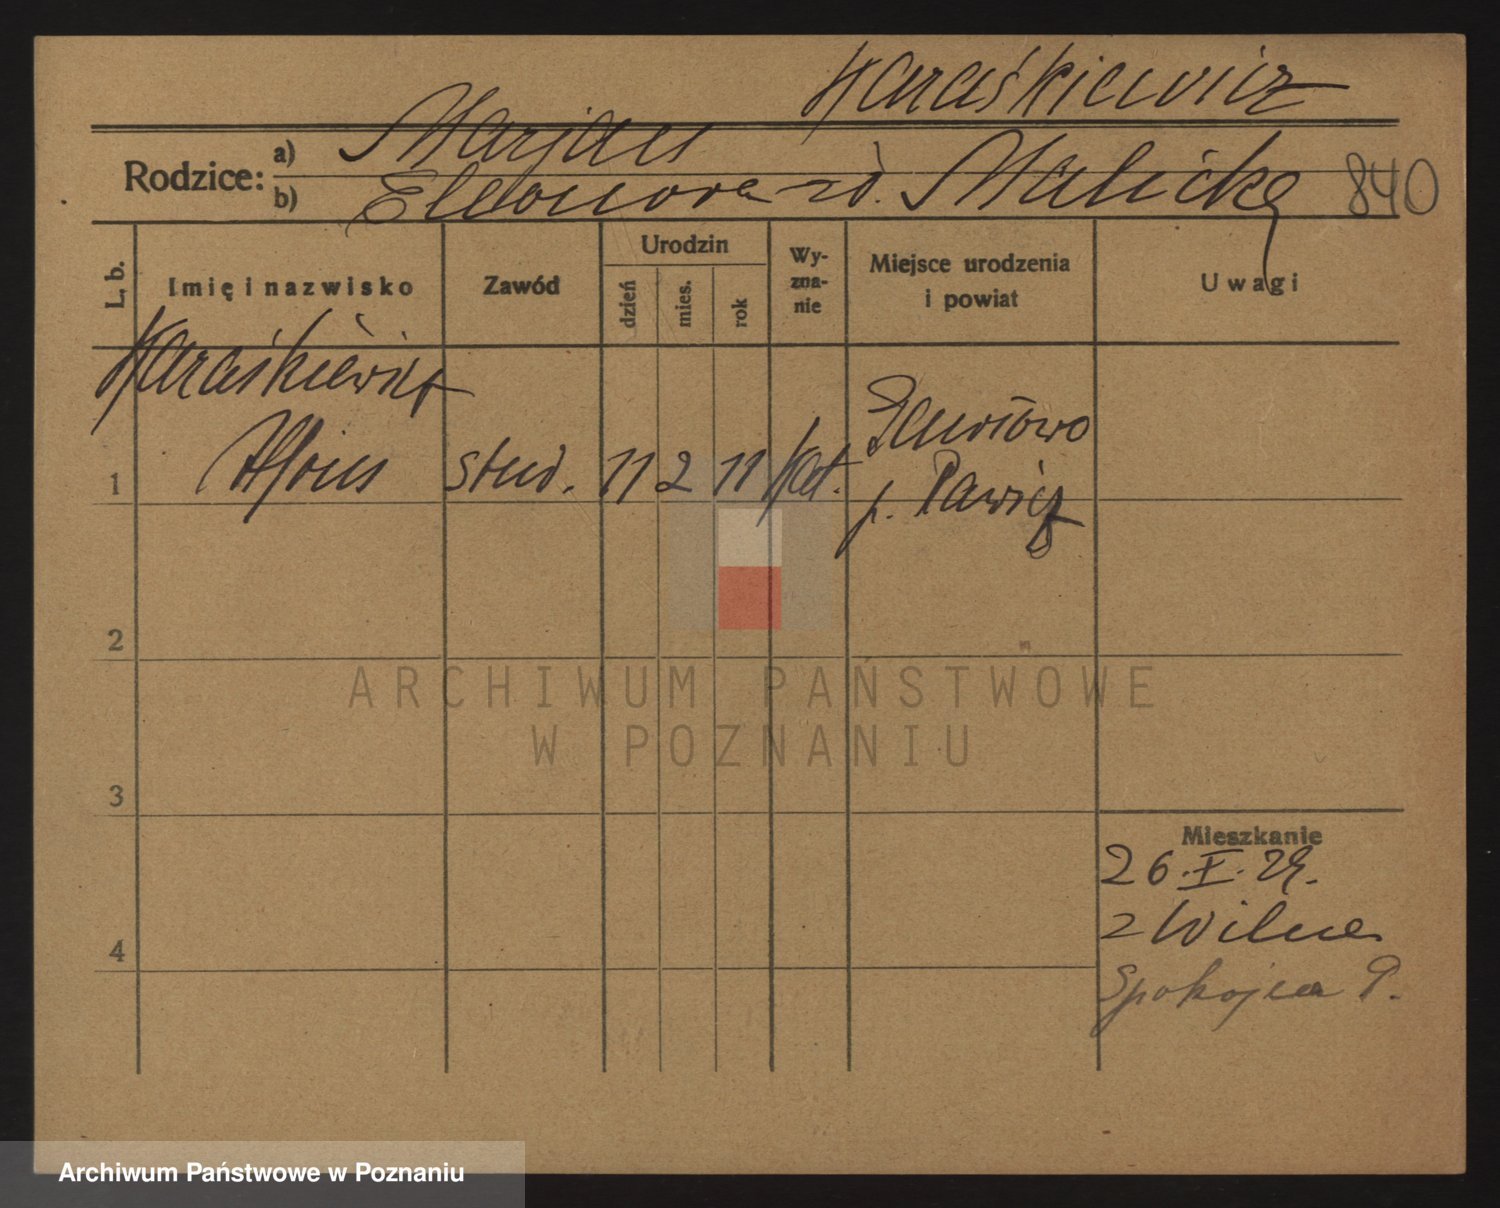 Haraśkiewicz
Rodzice: a) Marjan
b) Eleonora zd. Malicka 840
L. b. Imię i nazwisko Zawód Urodzin dzień mies. rok Wyznanie Miejsce urodzenia i powiat Uwagi
Haraśkiewicz
1 Alfons stud. 11 2 11 kat.
p. Rawicz
2
3
4
Mieszkanie
26.X.29.
z Wilna
Spokojna
ARCHIWUM PAŃSTWOWE
W POZNANIU
Archiwum Państwowe w Poznaniu